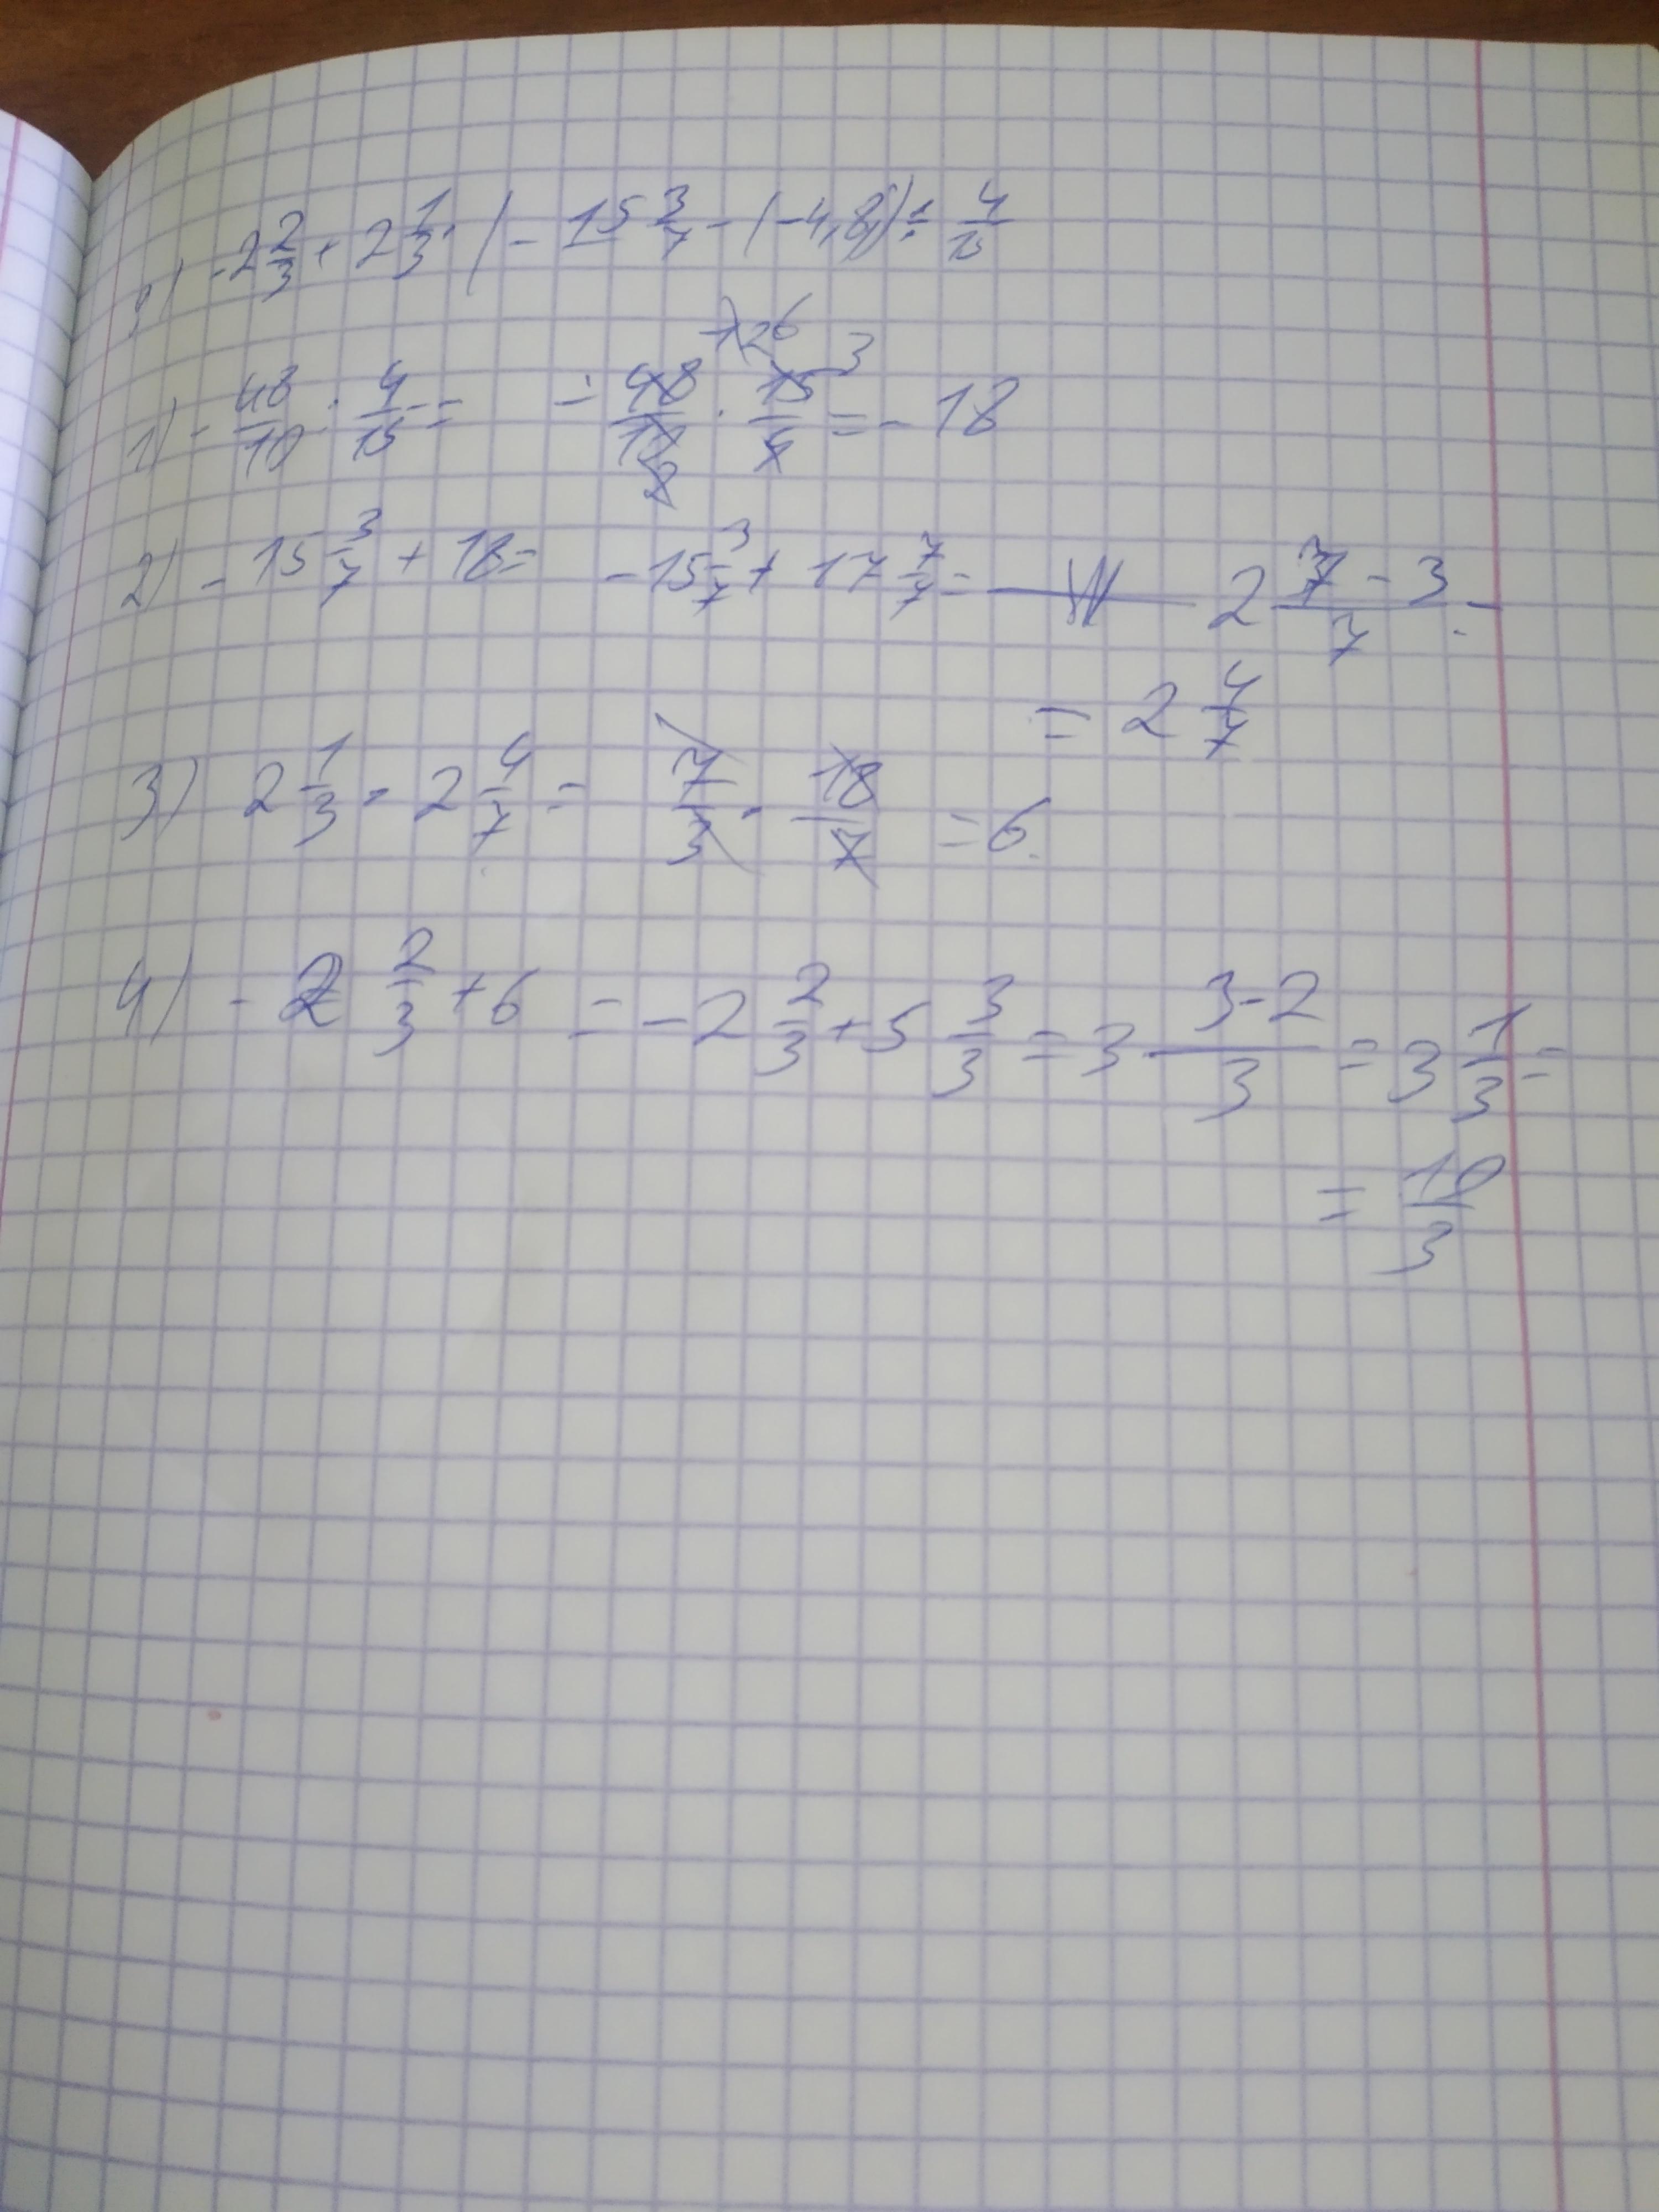 g) -2 2/3 + 2 1/3 · (-15 3/7 - (-4,8) : 4/15
1) - 48/10 : 4/15 = - 48/10 · 15/4 = -18
2) -15 3/7 + 18 = -15 3/7 + 17 7/7 = 2 7-3/7 =
= 2 4/7
3) 2 1/3 · 2 4/7 = 7/3 · 18/7 = 6
4) -2 2/3 + 6 = -2 2/3 + 5 3/3 = 3 3-2/3 = 3 1/3 =
= 10/3